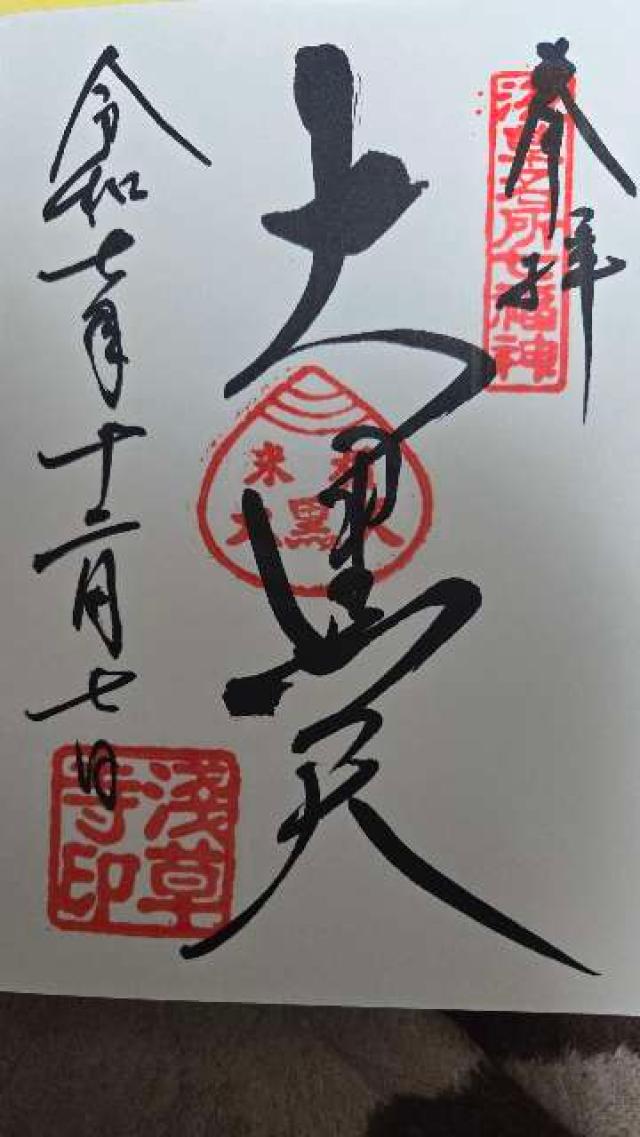 奉拝
浅草名所七福神
大黒天
米粒
大黒天
令和七年十二月七日
淺草
寺印